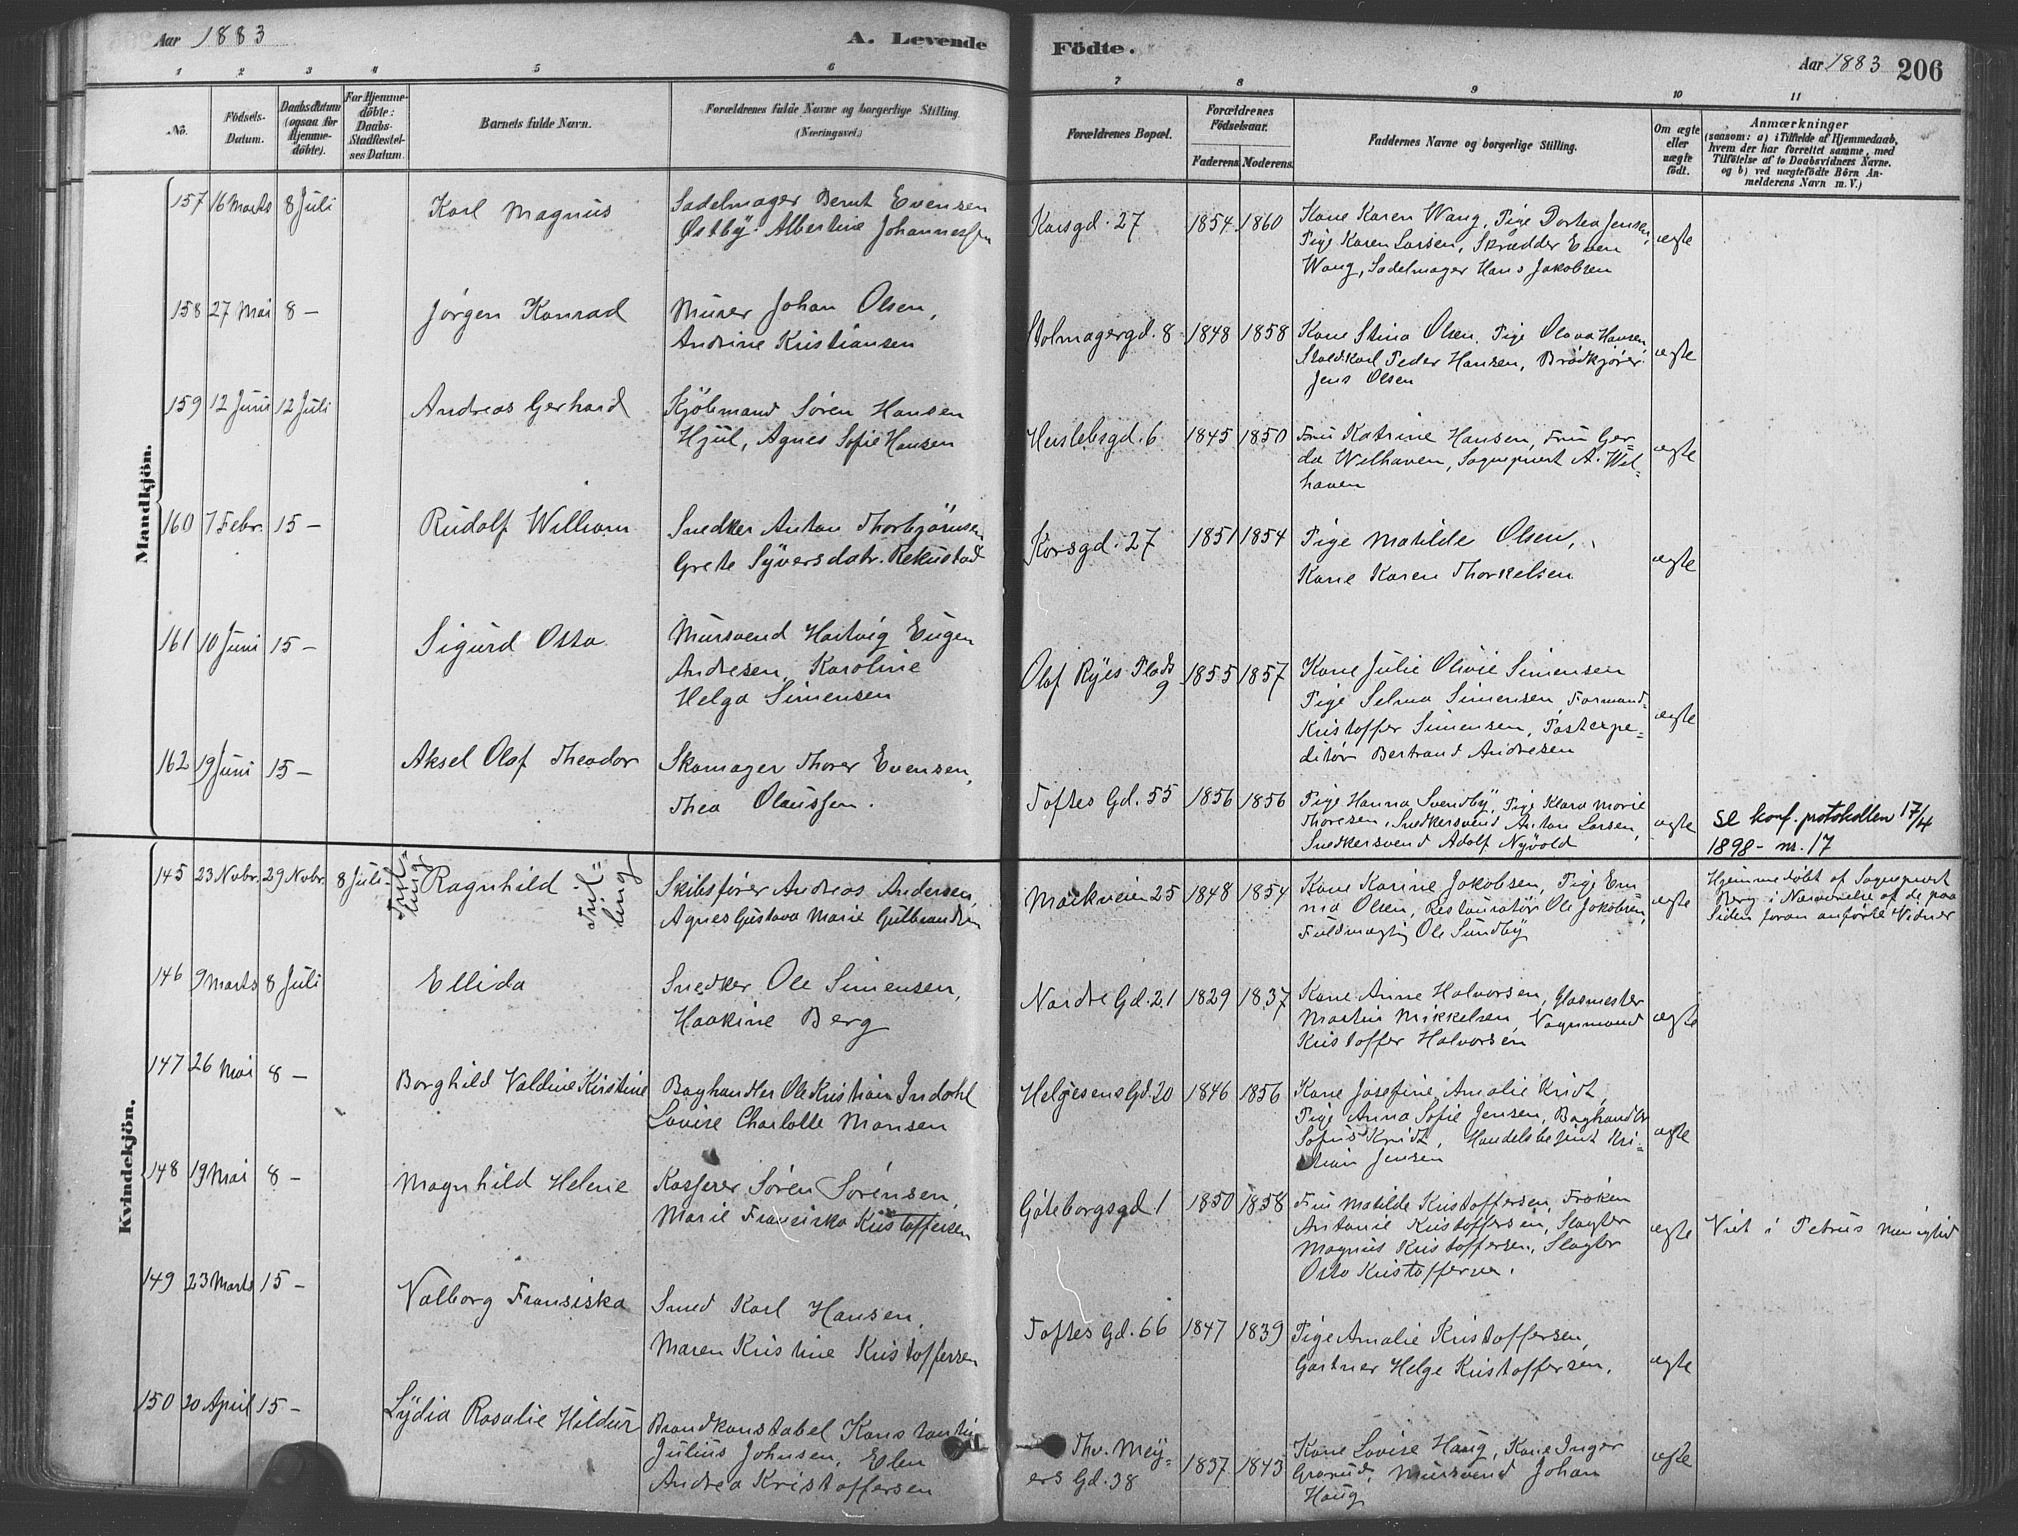 Aar 1883
A. Levende
Födte.
Aar 1883
206
1 2 3 4 5 6 7 8 9 10 11
No.
Födsels-
Datum.
Daabsdatum
(ogsaa for
Hjemme-
döbte).
For Hjemme-
döbte:
Daabs-
Stadfæstel-
ses Datum.
Barnets fulde Navn.
Forældrenes fulde Navne og borgerlige Stilling
(Næringsvei.)
Forældrenes Bopæl.
Forældrenes
Födselsaar.
Faderens. Moderens.
Faddernes Navne og borgerlige Stilling.
Om ægte
eller
uægte
födt.
Anmærkninger
(saasom: a) i Tilfælde af Hjemmedaab,
hvem der har forrettet samme, med
Tilföielse af to Daabsvidners Navne.
og b) ved uægtefödte Börn An-
melderens Navn m. V.)
Mandkjön.
157 16 Marts 8 Juli
Karl Magnus
Sadelmager Bernt Evensen
Østby. Albertine Johannessen
Korsgd. 27
1854 1860
Kone Karen Wang, Pige Dortea Jensen,
Pige Karen Larsen, Skrædder Even
Wang, Sadelmager Hans Jakobsen
ægte
158 27 Mai 8 —
Jørgen Konrad
Murer Johan Olsen,
Andrine Kristiansen
Stolmagergd. 8
1848 1858
Kone Stina Olsen, Pige Olava Hansen,
Staldkarl Peder Hansen, Brødkjører
Jens Olsen
ægte
159 12 Juni 12 Juli
Andreas Gerhard
Kjöbmand Søren Hansen
Hjul, Agnes Sofie Hansen
Herslebsgd. 6
1845 1850
Fru Katrine Hansen, Fru Ger-
da Welhaven, Sognepræst A. Wel-
haven
ægte
160 7 Febr. 15 —
Rudolf William
Snedker Anton Thorbjørnsen
Grete Syversdatr. Rekustad
Korsgd. 27
1851 1854
Pige Matilde Olsen,
Kone Karen Thorkelsen
ægte
161 10 Juni 15 —
Sigurd Otto
Mursvend Hartvig Eugen
Andresen, Karoline
Helga Simensen
Olaf Ryes Plads
9
1855 1857
Kone Julie Olivie Simensen
Pige Selma Simensen, Formand
Kristoffer Simensen, Postexpe-
ditør Bertrand Andresen
ægte
162 19 Juni 15 —
Aksel Olaf Theodor
Skomager Thorer Evensen,
Thea Olaussen.
Toftes Gd. 55
1856 1856
Pige Hanna Svendby, Pige Klara Marie
Thoresen, Snedkersvend Anton Larsen,
Snedkersvend Adolf Nyvold
ægte
se konf. protokollen 17/4
1898 - nr. 17
Kvindekjön.
145 23 Novbr. 29 Novbr. 8 Juli
Tvil-
ling
Ragnhild
Tvil-
ling
Skibsfører Andreas Andersen,
Agnes Gustava Marie Gulbrandsen
Markveien 25
1848 1854
Kone Karine Jakobsen, Pige Em-
ma Olsen, Restauratør Ole Jakobsen,
Fuldmægtig Ole Sundby
ægte
Hjemmedøbt af Sognepræst
Berg i Nærværelse af de paa
Siden foran anførte Vidner
146 9 Marts 8 Juli
Ellida
Snedker Ole Simensen,
Haakine Berg
Nordre Gd. 21
1829 1837
Kone Anne Halvorsen, Glasmester
Martin Mikkelsen, Vognmand
Kristoffer Halvorsen
ægte
147 26 Mai 8 —
Borghild Valdine Kirstine
Boghandler Ole Kristian Indahl
Lovise Charlotte Monsen
Helgesens Gd. 20
1846 1856
Kone Josefine Amalie Kridt,
Pige Anna Sofie Jensen, Boghandler
Sofus Kridt, Handelsbetjent Kri-
stian Jensen
ægte
148 19 Mai 8 —
Magnhild Helene
Kasserer Søren Sørensen,
Marie Fransiska Kristoffersen
Göteborgsgd 1
1850 1858
Fru Matilde Kristoffersen, Frøken
Antonie Kristoffersen, Slagter
Magnus Kristoffersen, Slagter
Otto Kristoffersen.
ægte
Viet i Petrus Menighed
149 23 Marts 15 —
Valborg Fransiska
Smed Karl Hansen,
Maren Kristine Kristoffersen
Toftes Gd. 66
1847 1839
Pige Amalie Kristoffersen,
Gartner Helge Kristoffersen.
ægte
150 20 April 15 —
Lydia Rosalie Hildur
Brandkonstabel Konstantin
Julius Johnsen, Elen
Andrea Kristoffersen
Thv. Mey-
ers Gd. 38
1837 1843
Kone Lovise Haug, Kone Inger
Grorud, Mursvend Johan
Haug
ægte